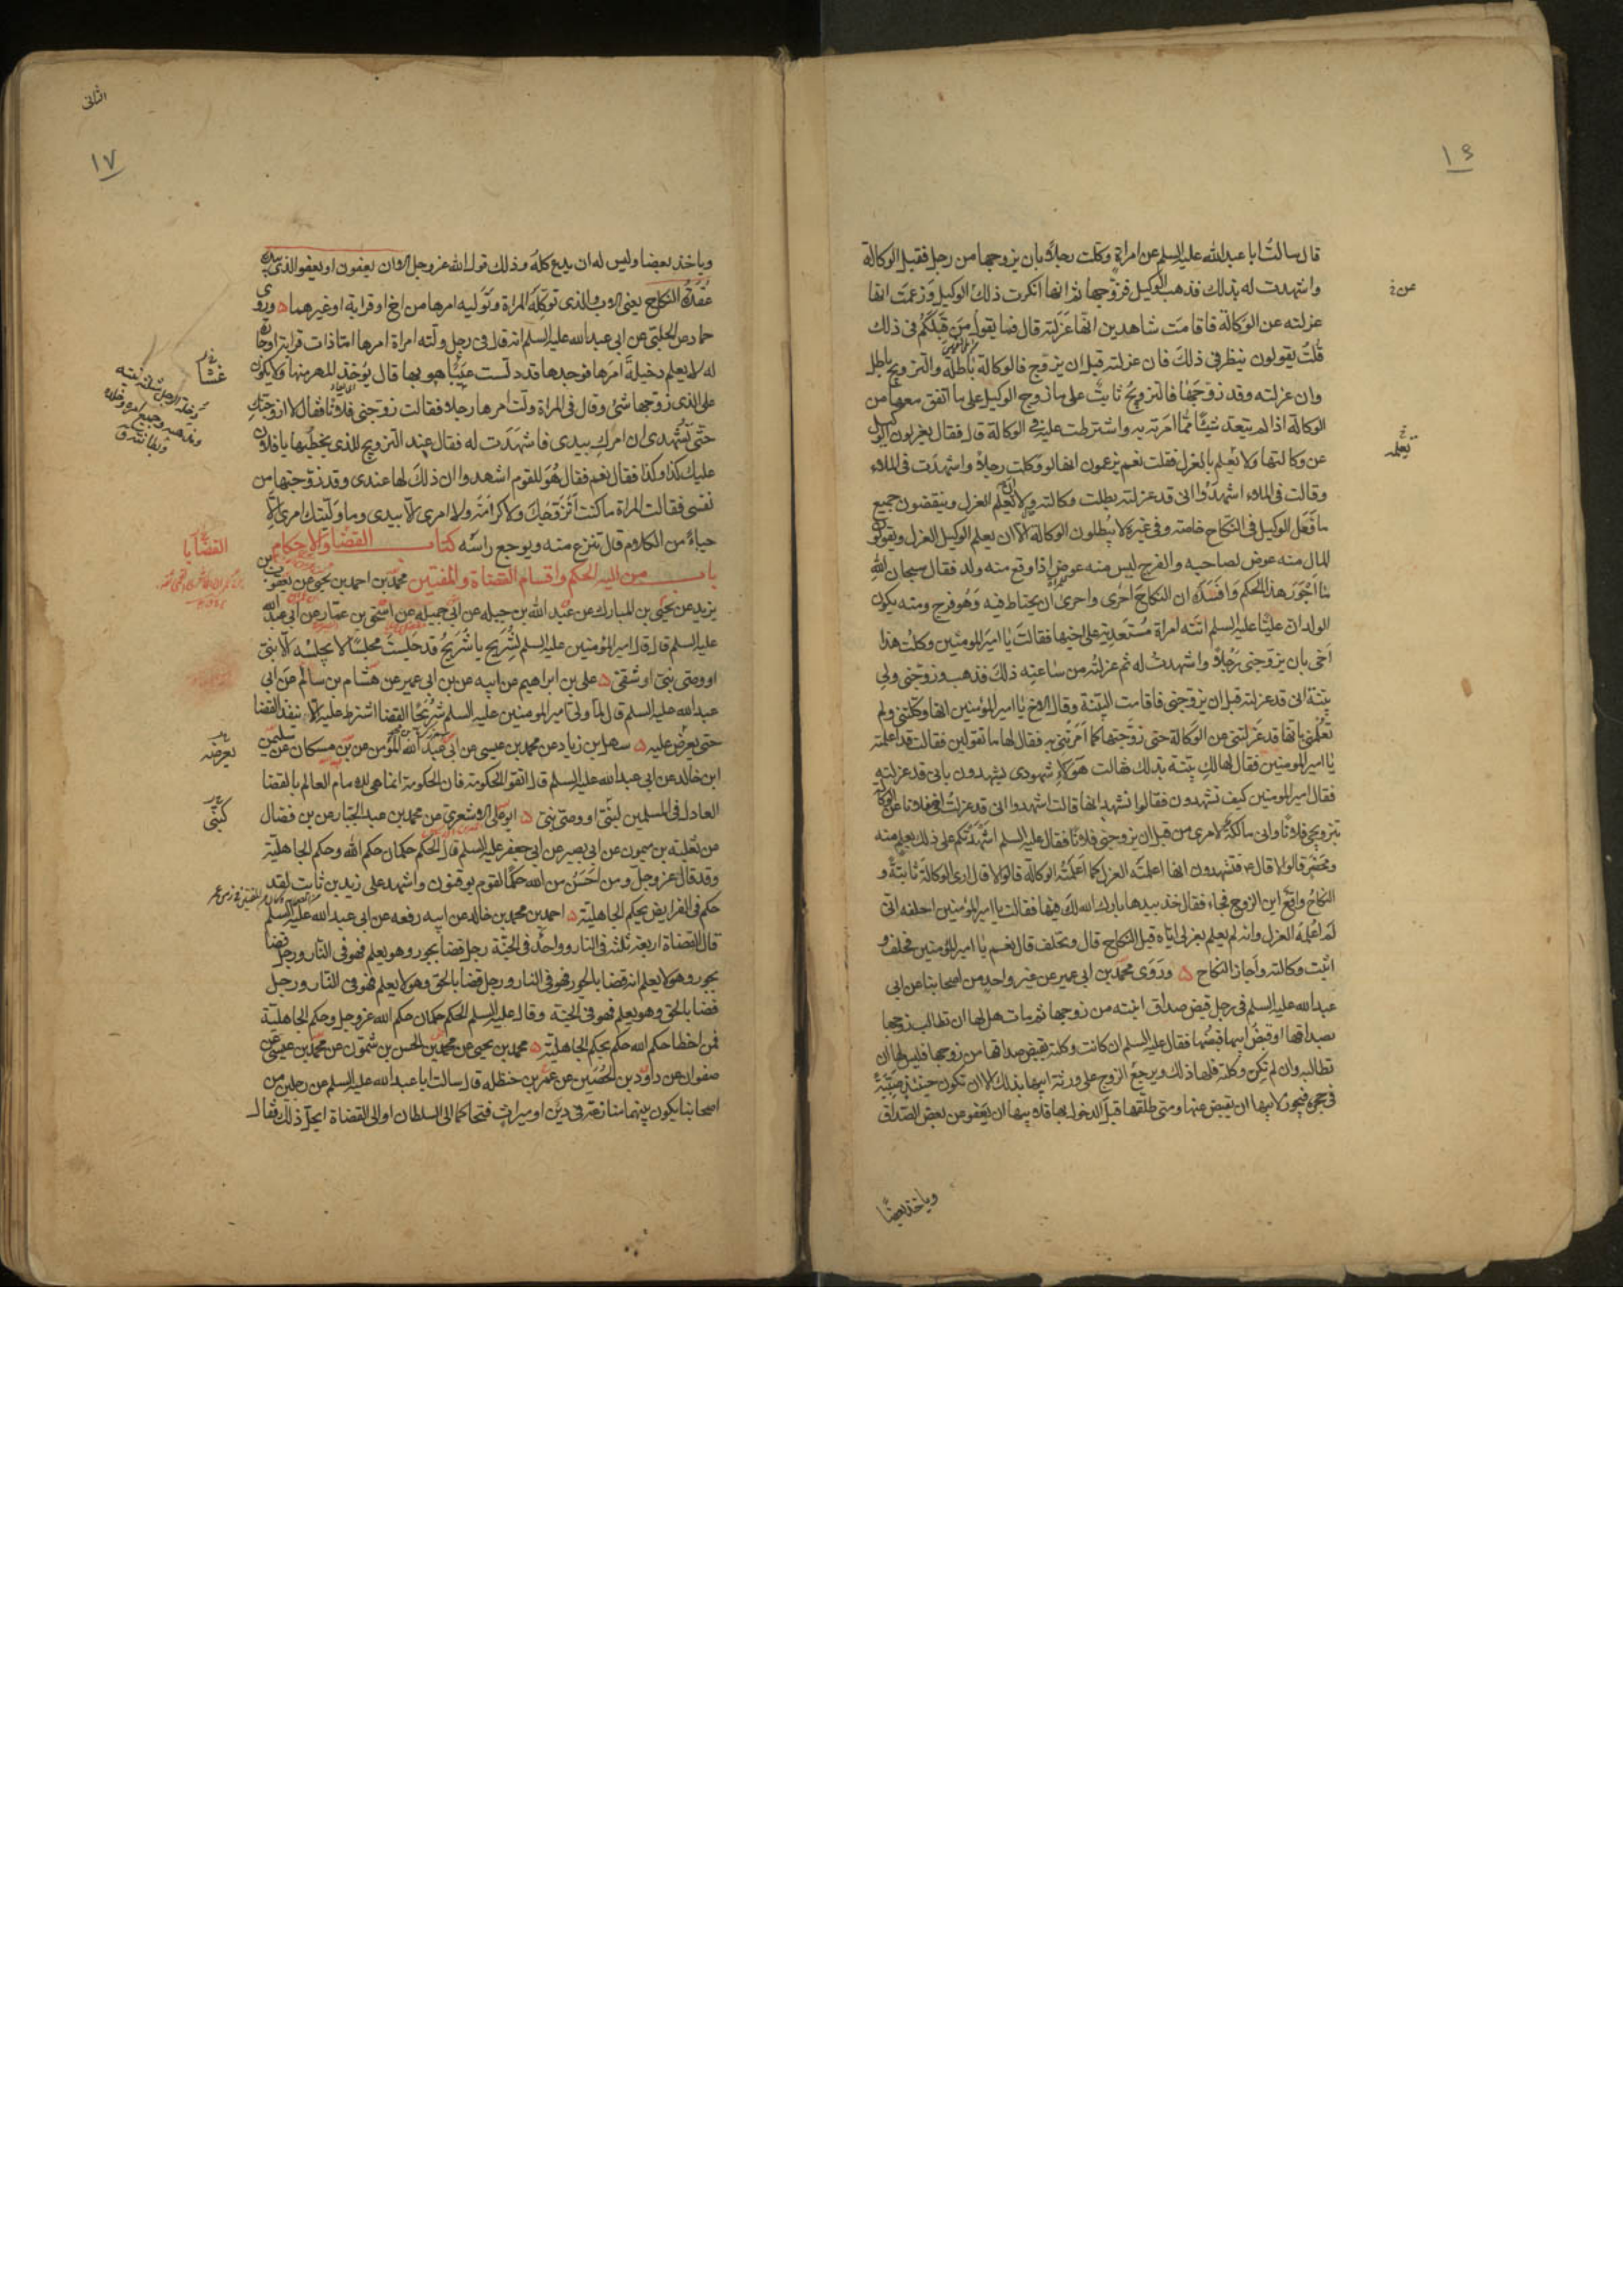 ١٦
قال سالت ابا عبدالله عليه السلم عن امراة وكلت رجلا بان يزوجها من رجل فقبل الوكالة
واشهدت له بذلك فذهب الوكيل فزوجها ثم انها انكرت ذلك الوكيل وزعمت انها
عزلته عن الوكالة فاقامت شاهدين انها عزلته قال فما يقول من قبلكم فى ذلك
قلت يقولون ينظر فى ذلك فان عزلته قبل ان يزوج فالوكالة باطلة والتزويج باطل
وان عزلته وقد زوجها فالتزويج ثابت على ما زوج الوكيل على ما اتفق معها من
الوكالة اذا لم يتعد شيئا مما امرته به واشترطت عليه فى الوكالة قال فقال يعزلون الوكيل
عن وكالتها ولا تعلم بالعزل فقلت نعم يزعمون انها لو وكلت رجلا واشهدت فى الملاء
وقالت فى الملاء اشهدوا انى قد عزلته بطلت وكالته ولا تعلم العزل وينقضون جميع
ما فعل الوكيل فى النكاح خاصة وفى غيره لا يبطلون الوكالة الا ان يعلم الوكيل العزل ويقولون
المال منه عوض لصاحبه والفرج ليس منه عوض اذا وقع منه ولد فقال سبحان الله
ما اجور هذا الحكم وافسده ان النكاح احرى واحرى ان يحتاط فيه وهو فرج ومنه يكون
الولد ان عليا عليه السلم اتته امراة مستعدية على اخيها فقالت يا امير المومنين وكلت هذا
اخى بان يزوجنى رجلا واشهدت له ثم عزلته من ساعته ذلك فذهب وزوجنى ولى
بينة انى قد عزلته قبل ان يزوجنى فاقامت البينة وقال الاخ يا امير المؤمنين انها وكلتنى ولم
تعلمنى بانها قد عزلتنى من الوكالة حتى زوجتها كما امرتنى به فقال لها ما تقولين فقالت قد اعلمته
يا امير المومنين فقال لها لك بينة بذلك فقالت هؤلاء شهودى يشهدون بانى قد عزلته
فقال امير المومنين كيف تشهدون فقالوا نشهد انها قالت اشهدوا انى قد عزلت اخى فلانا عن الوكالة
بتزويجى فلانا وانى مالكة لامرى من قبل ان يزوجنى فلانا فقال عليه السلم اشهدتكم على ذلك بعلم منه
ومحضر قالوا لا قال فتشهدون انها اعلمته العزل كما اعلمته الوكالة قالوا لا قال ارى الوكالة ثابتة و
النكاح واقع اين الزوج فجاء فقال خذ بيدها بارك الله لك فيها فقالت يا امير المؤمنين احلفه انى
لم اعلمه العزل وانه لم يعلم بعزلى اياه قبل النكاح قال وتحلف قال نعم يا امير المؤمنين فحلف و
اثبت وكالته واجاز النكاح ه وروى محمد بن ابى عمير عن غير واحد من اصحابنا عن ابى
عبدالله عليه السلم فى رجل قبض صداق ابنته من زوجها ثم مات هل لها ان تطالب زوجها
بصداقها او قبض ابيها قبضها فقال عليه السلم ان كانت وكلته بقبض صداقها من زوجها فليس لها ان
تطالبه وان لم تكن وكلته فلها ذلك ويرجع الزوج على ورثة ابيها بذلك الا ان تكون حينئذ صبية
فى حجره فيجوز لابيها ان يقبض عنها ومتى طلقها قبل الدخول بها فلابيها ان يعفو عن بعض الصداق
وياخذ بعضا
تعلمه
١٧
وياخذ بعضا وليس له ان يدع كله وذلك قول الله عز وجل الا ان يعفون او يعفو الذى بيده
عقدة النكاح يعنى الاب والذى توكله المراة وتوليه امرها من اخ او قرابة او غيرهما ه وروى
حماد عن الحلبى عن ابى عبدالله عليه السلم انه قال فى رجل ولته امراة امرها اما ذات قرابة او جارة
له لا يعلم دخيلة امرها فوجدها قد دلست عيبا هو بها قال يؤخذ المهر منها ولا يكون
على الذى زوجها شئ وقال فى المراة ولت امرها رجلا فقالت زوجنى فلانا فقال لا ازوجتك
حتى تشهدى ان امرك بيدى فاشهدت له فقال عند التزويج للذى يخطبها يا فلان
عليك كذا وكذا فقال نعم فقال هو للقوم اشهدوا ان ذلك لها عندى وقد زوجتها من
نفسى فقالت المراة ما كنت اتزوجك ولا كرامة ولا امرى الا بيدى وما وليتك امرى الا
حياء من الكلام قال تنزع منه ويوجع راسه كتاب القضا والاحكام
باب من اليه الحكم واقسام القضاة والمفتين محمد بن احمد بن يحيى عن يعقوب بن
يزيد عن يحيى بن المبارك عن عبد الله بن جبله عن ابى جميله عن اسحق بن عمار عن ابى عبد الله
عليه السلم قال قال امير المؤمنين عليه السلم لشريح يا شريح قد جلست مجلسا لا يجلسه الا نبى
او وصى نبى او شقى ه على بن ابراهيم عن ابيه عن بن ابى عمير عن هشام بن سالم عن ابى
عبد الله عليه السلم قال لما ولى امير المومنين عليه السلم شريحا القضا اشترط عليه الا ينفذ القضا
حتى يعرض عليه ه سهل بن زياد عن محمد بن عيسى عن ابى عبد الله المؤمن عن بن مسكان عن سليمن
ابن خالد عن ابى عبد الله عليه السلم قال اتقوا الحكومة فان الحكومة انما هى للامام العالم بالقضا
العادل فى المسلمين لنبى او وصى نبى ه ابو على الاشعرى عن محمد بن عبد الجبار عن بن فضال
عن ثعلبة بن ميمون عن ابى بصير عن ابى جعفر عليه السلم قال الحكم حكمان حكم الله وحكم الجاهلية
وقد قال عز وجل ومن احسن من الله حكما لقوم يوقنون واشهد على زيد بن ثابت لقد
حكم فى الفرايض بحكم الجاهلية ه احمد بن محمد بن خالد عن ابيه رفعه عن ابى عبد الله عليه السلم
قال القضاة اربعة ثلثة فى النار وواحد فى الجنة رجل قضا بجور وهو يعلم فهو فى النار ورجل قضا
بجور وهو لا يعلم انه قضا بالجور فهو فى النار ورجل قضا بالحق وهو لا يعلم فهو فى النار ورجل
قضا بالحق وهو يعلم فهو فى الجنة وقال عليه السلم الحكم حكمان حكم الله عز وجل وحكم الجاهلية
فمن اخطا حكم الله حكم بحكم الجاهلية ه محمد بن يحيى عن محمد بن الحسن بن شمون عن محمد بن عيسى عن
صفوان عن داود بن الحصين عن عمر بن حنظله قال سالت ابا عبد الله عليه السلم عن رجلين من
اصحابنا يكون بينهما منازعة فى دين او ميراث فتحاكما الى السلطان او الى القضاة ايحل ذلك فقال
القضايا
يعرضه
كنبى